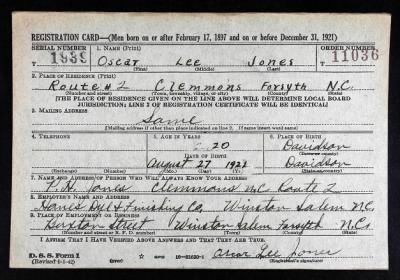 REGISTRATION CARD—(Men born on or after February 17, 1897 and on or before December 31, 1921)
SERIAL NUMBER 1. NAME (Print) ORDER NUMBER
T 1939 Oscar Lee Jones T 11036
(First) (Middle) (Last)
2. PLACE OF RESIDENCE (Print)
Route #2 Clemmons Forsyth N.C.
(Number and street) (Town, township, village, or city) (County) (State)
[THE PLACE OF RESIDENCE GIVEN ON THE LINE ABOVE WILL DETERMINE LOCAL BOARD
JURISDICTION; LINE 2 OF REGISTRATION CERTIFICATE WILL BE IDENTICAL]
3. MAILING ADDRESS
Same
[Mailing address if other than place indicated on line 2. If same insert word same]
4. TELEPHONE 5. AGE IN YEARS 6. PLACE OF BIRTH
20 Davidson
DATE OF BIRTH (Town or county)
August 27 1921 Davidson
(Exchange) (Number) (Mo.) (Day) (Yr.) (State or country)
7. NAME AND ADDRESS OF PERSON WHO WILL ALWAYS KNOW YOUR ADDRESS
Jones Clemmons N.C Route 2
8. EMPLOYER'S NAME AND ADDRESS
Hanes Dye & Finishing Co. Winston Salem N.C.
9. PLACE OF EMPLOYMENT OR BUSINESS
Street Winston Salem Forsyth N.C.
(Number and street or R. F. D. number) (Town) (County) (State)
I AFFIRM THAT I HAVE VERIFIED ABOVE ANSWERS AND THAT THEY ARE TRUE.
D. S. S. Form 1
(Revised 6-1-42) (over) 16-21630-1 Oscar Lee Jones